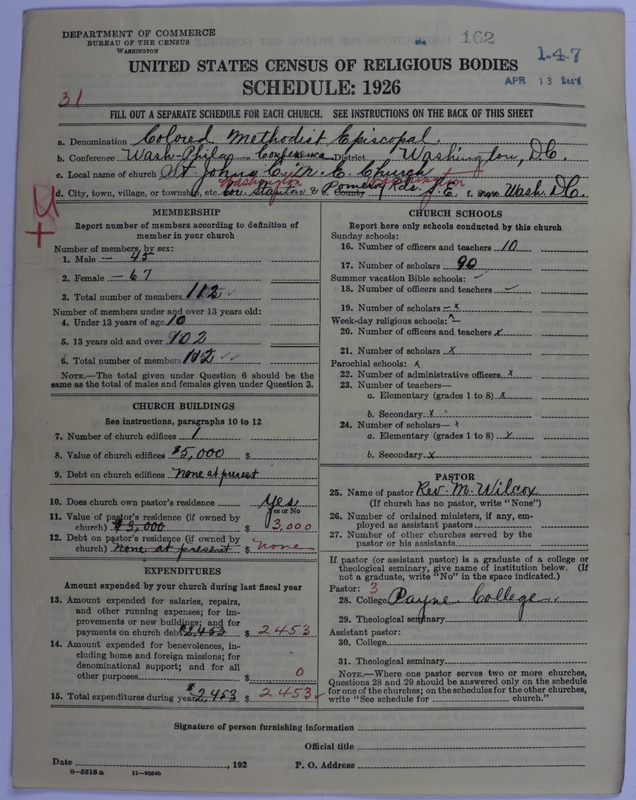 DEPARTMENT OF COMMERCE
BUREAU OF THE CENSUS
WASHINGTON
162
1-4-7
APR 13 Rec'd
UNITED STATES CENSUS OF RELIGIOUS BODIES
SCHEDULE: 1926
31
FILL OUT A SEPARATE SCHEDULE FOR EACH CHURCH. SEE INSTRUCTIONS ON THE BACK OF THIS SHEET
a. Denomination Colored Methodist Episcopal.
b. Conference Wash-Phila Conference District Washington, D.C.
c. Local name of church St Johns C. M. E. Church
Washington Washington
d. City, town, village, or township, etc. Cor. Stanton & Pomeroy Rds. S.E. e. County f. State Wash. D.C.
MEMBERSHIP
Report number of members according to definition of member in your church
Number of members, by sex:
1. Male — 45
2. Female — 67
3. Total number of members 112
Number of members under and over 13 years old:
4. Under 13 years of age 10
5. 13 years old and over 102
6. Total number of members 112
NOTE.—The total given under Question 6 should be the same as the total of males and females given under Question 3.
CHURCH BUILDINGS
See instructions, paragraphs 10 to 12
7. Number of church edifices 1
8. Value of church edifices $5,000 $
9. Debt on church edifices None at present
10. Does church own pastor's residence Yes
Yes or No
11. Value of pastor's residence (if owned by church) $3,000 $ 3,000
12. Debt on pastor's residence (if owned by church) none at present $ none
EXPENDITURES
Amount expended by your church during last fiscal year
13. Amount expended for salaries, repairs, and other running expenses; for improvements or new buildings; and for payments on church debt $2,453 $ 2453
14. Amount expended for benevolences, including home and foreign missions; for denominational support; and for all other purposes $ 0
15. Total expenditures during year $2,453 $ 2453
CHURCH SCHOOLS
Report here only schools conducted by this church
Sunday schools:
16. Number of officers and teachers 10
17. Number of scholars 90
Summer vacation Bible schools:
18. Number of officers and teachers
19. Number of scholars x
Week-day religious schools:
20. Number of officers and teachers x
21. Number of scholars x
Parochial schools: x
22. Number of administrative officers x
23. Number of teachers—
a. Elementary (grades 1 to 8) x
b. Secondary x
24. Number of scholars— x
a. Elementary (grades 1 to 8) x
b. Secondary x
PASTOR
25. Name of pastor Rev. M. Wilcox
(If church has no pastor, write "None")
26. Number of ordained ministers, if any, employed as assistant pastors
27. Number of other churches served by the pastor or his assistants
If pastor (or assistant pastor) is a graduate of a college or theological seminary, give name of institution below. (If not a graduate, write "No" in the space indicated.)
Pastor: 3
28. College Payne College
29. Theological seminary
Assistant pastor:
30. College
31. Theological seminary
NOTE.—Where one pastor serves two or more churches, Questions 28 and 29 should be answered only on the schedule for one of the churches; on the schedules for the other churches, write "See schedule for church."
Signature of person furnishing information
Official title
Date , 192 P. O. Address
8—5518 a 11—9524b